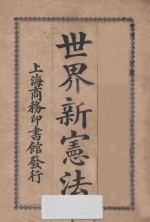 世界新憲法
上海商務印書館發行